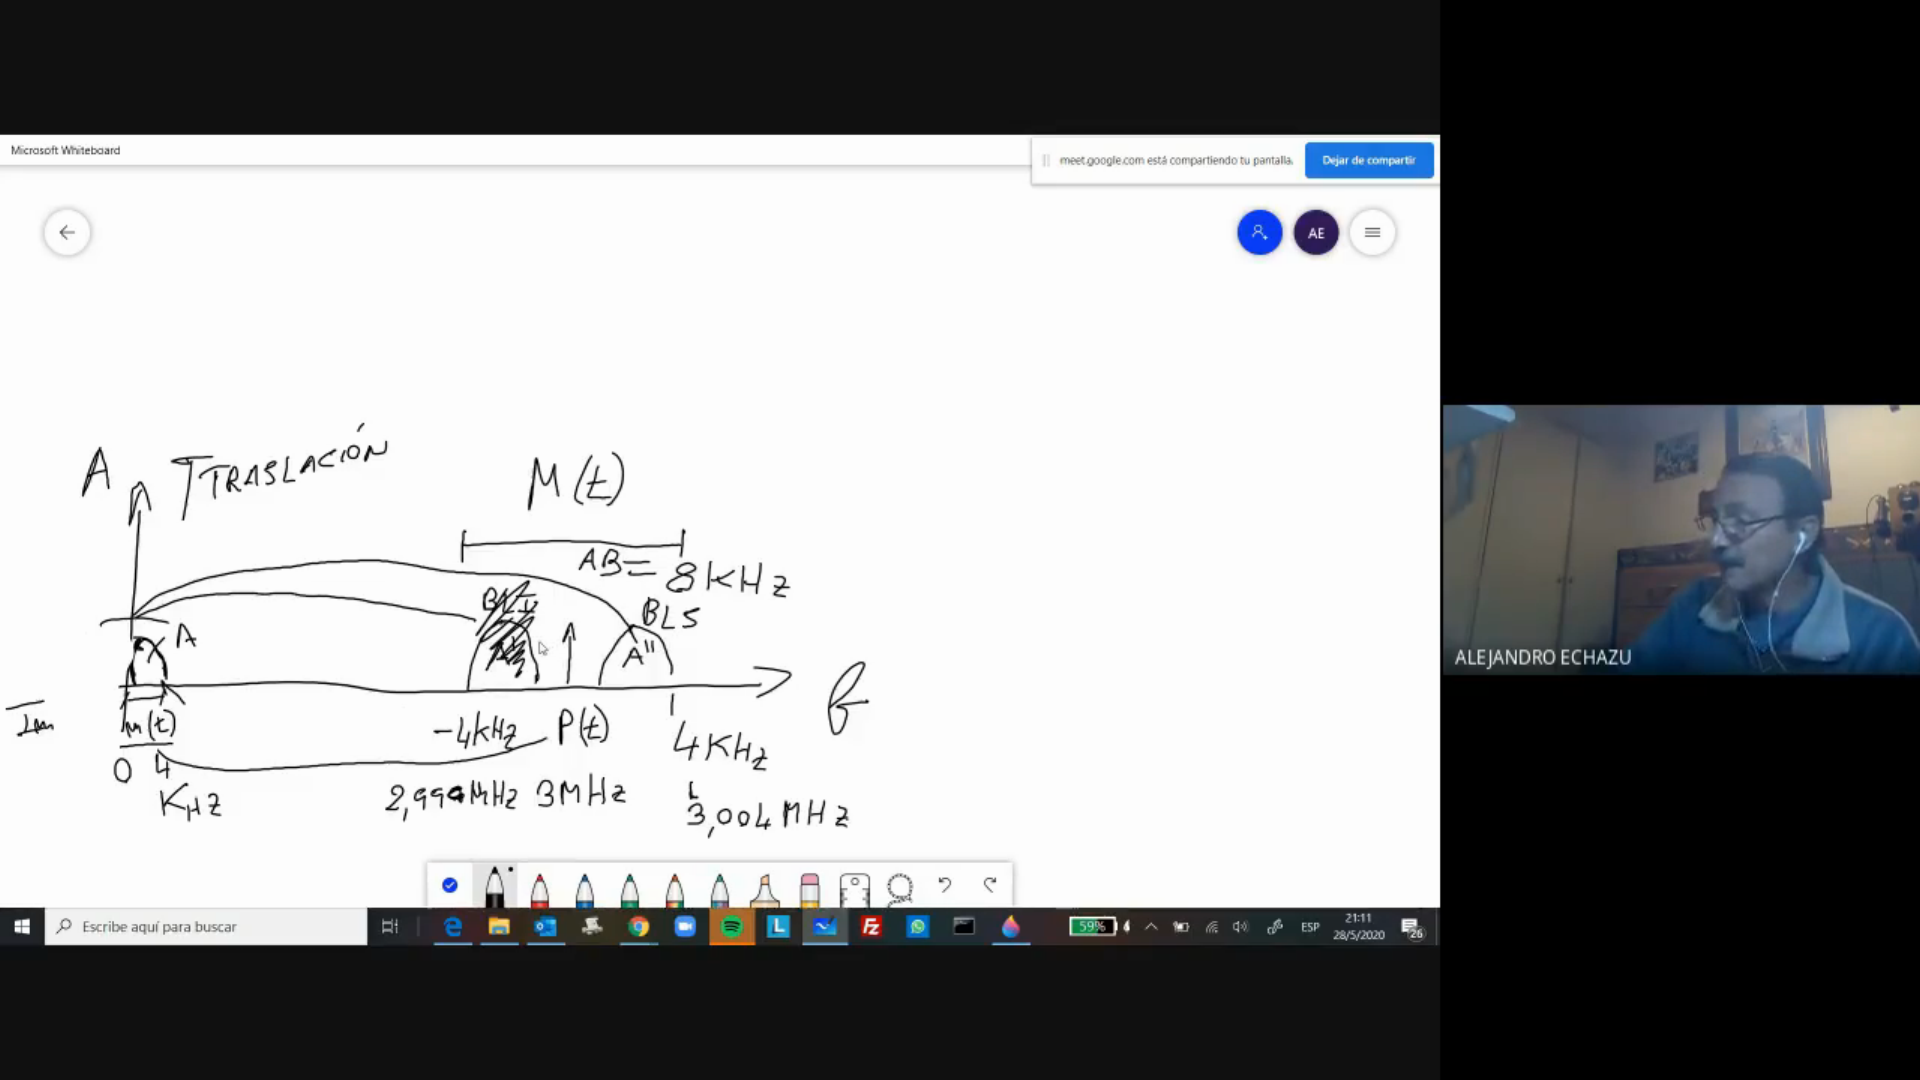 Microsoft Whiteboard
meet.google.com está compartiendo tu pantalla.
Dejar de compartir
AE
A
TRASLACIÓN
M(t)
AB= 8KHz
BLI
BLS
A
A'
A"
m(t)
-4KHz
P(t)
4KHz
f
0
4
KHz
2,996MHz
3MHz
3,004MHz
Im
ALEJANDRO ECHAZU
Escribe aquí para buscar
59%
ESP
21:11
28/5/2020
26